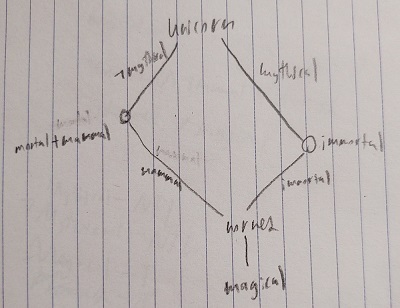 Unicorn
¬mythical
mythical
mortal + mammal
immortal
mammal
immortal
horned
magical